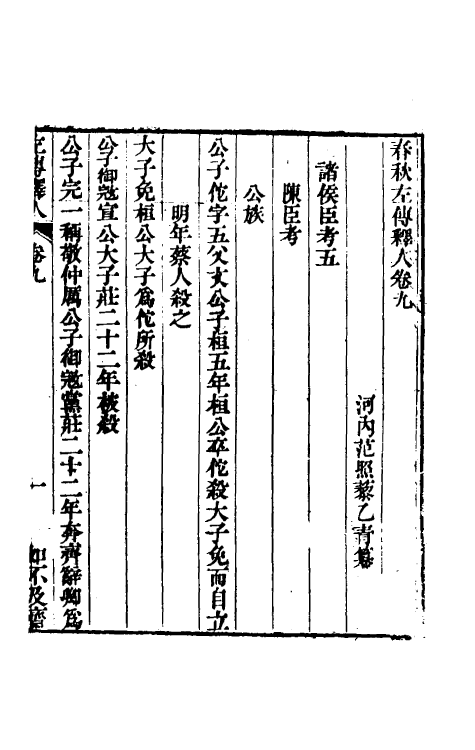 春秋左傳釋人卷九
河內范照藜乙青纂
諸侯臣考五
陳臣考
公族
公子佗字五父文公子桓五年桓公卒佗殺大子免而自立
明年蔡人殺之
大子免桓公大子爲佗所殺
公子御寇宣公大子莊二十二年被殺
公子完一稱敬仲厲公子御寇黨莊二十二年奔齊辭卿爲
左傳釋人
卷九
一
如不及齋